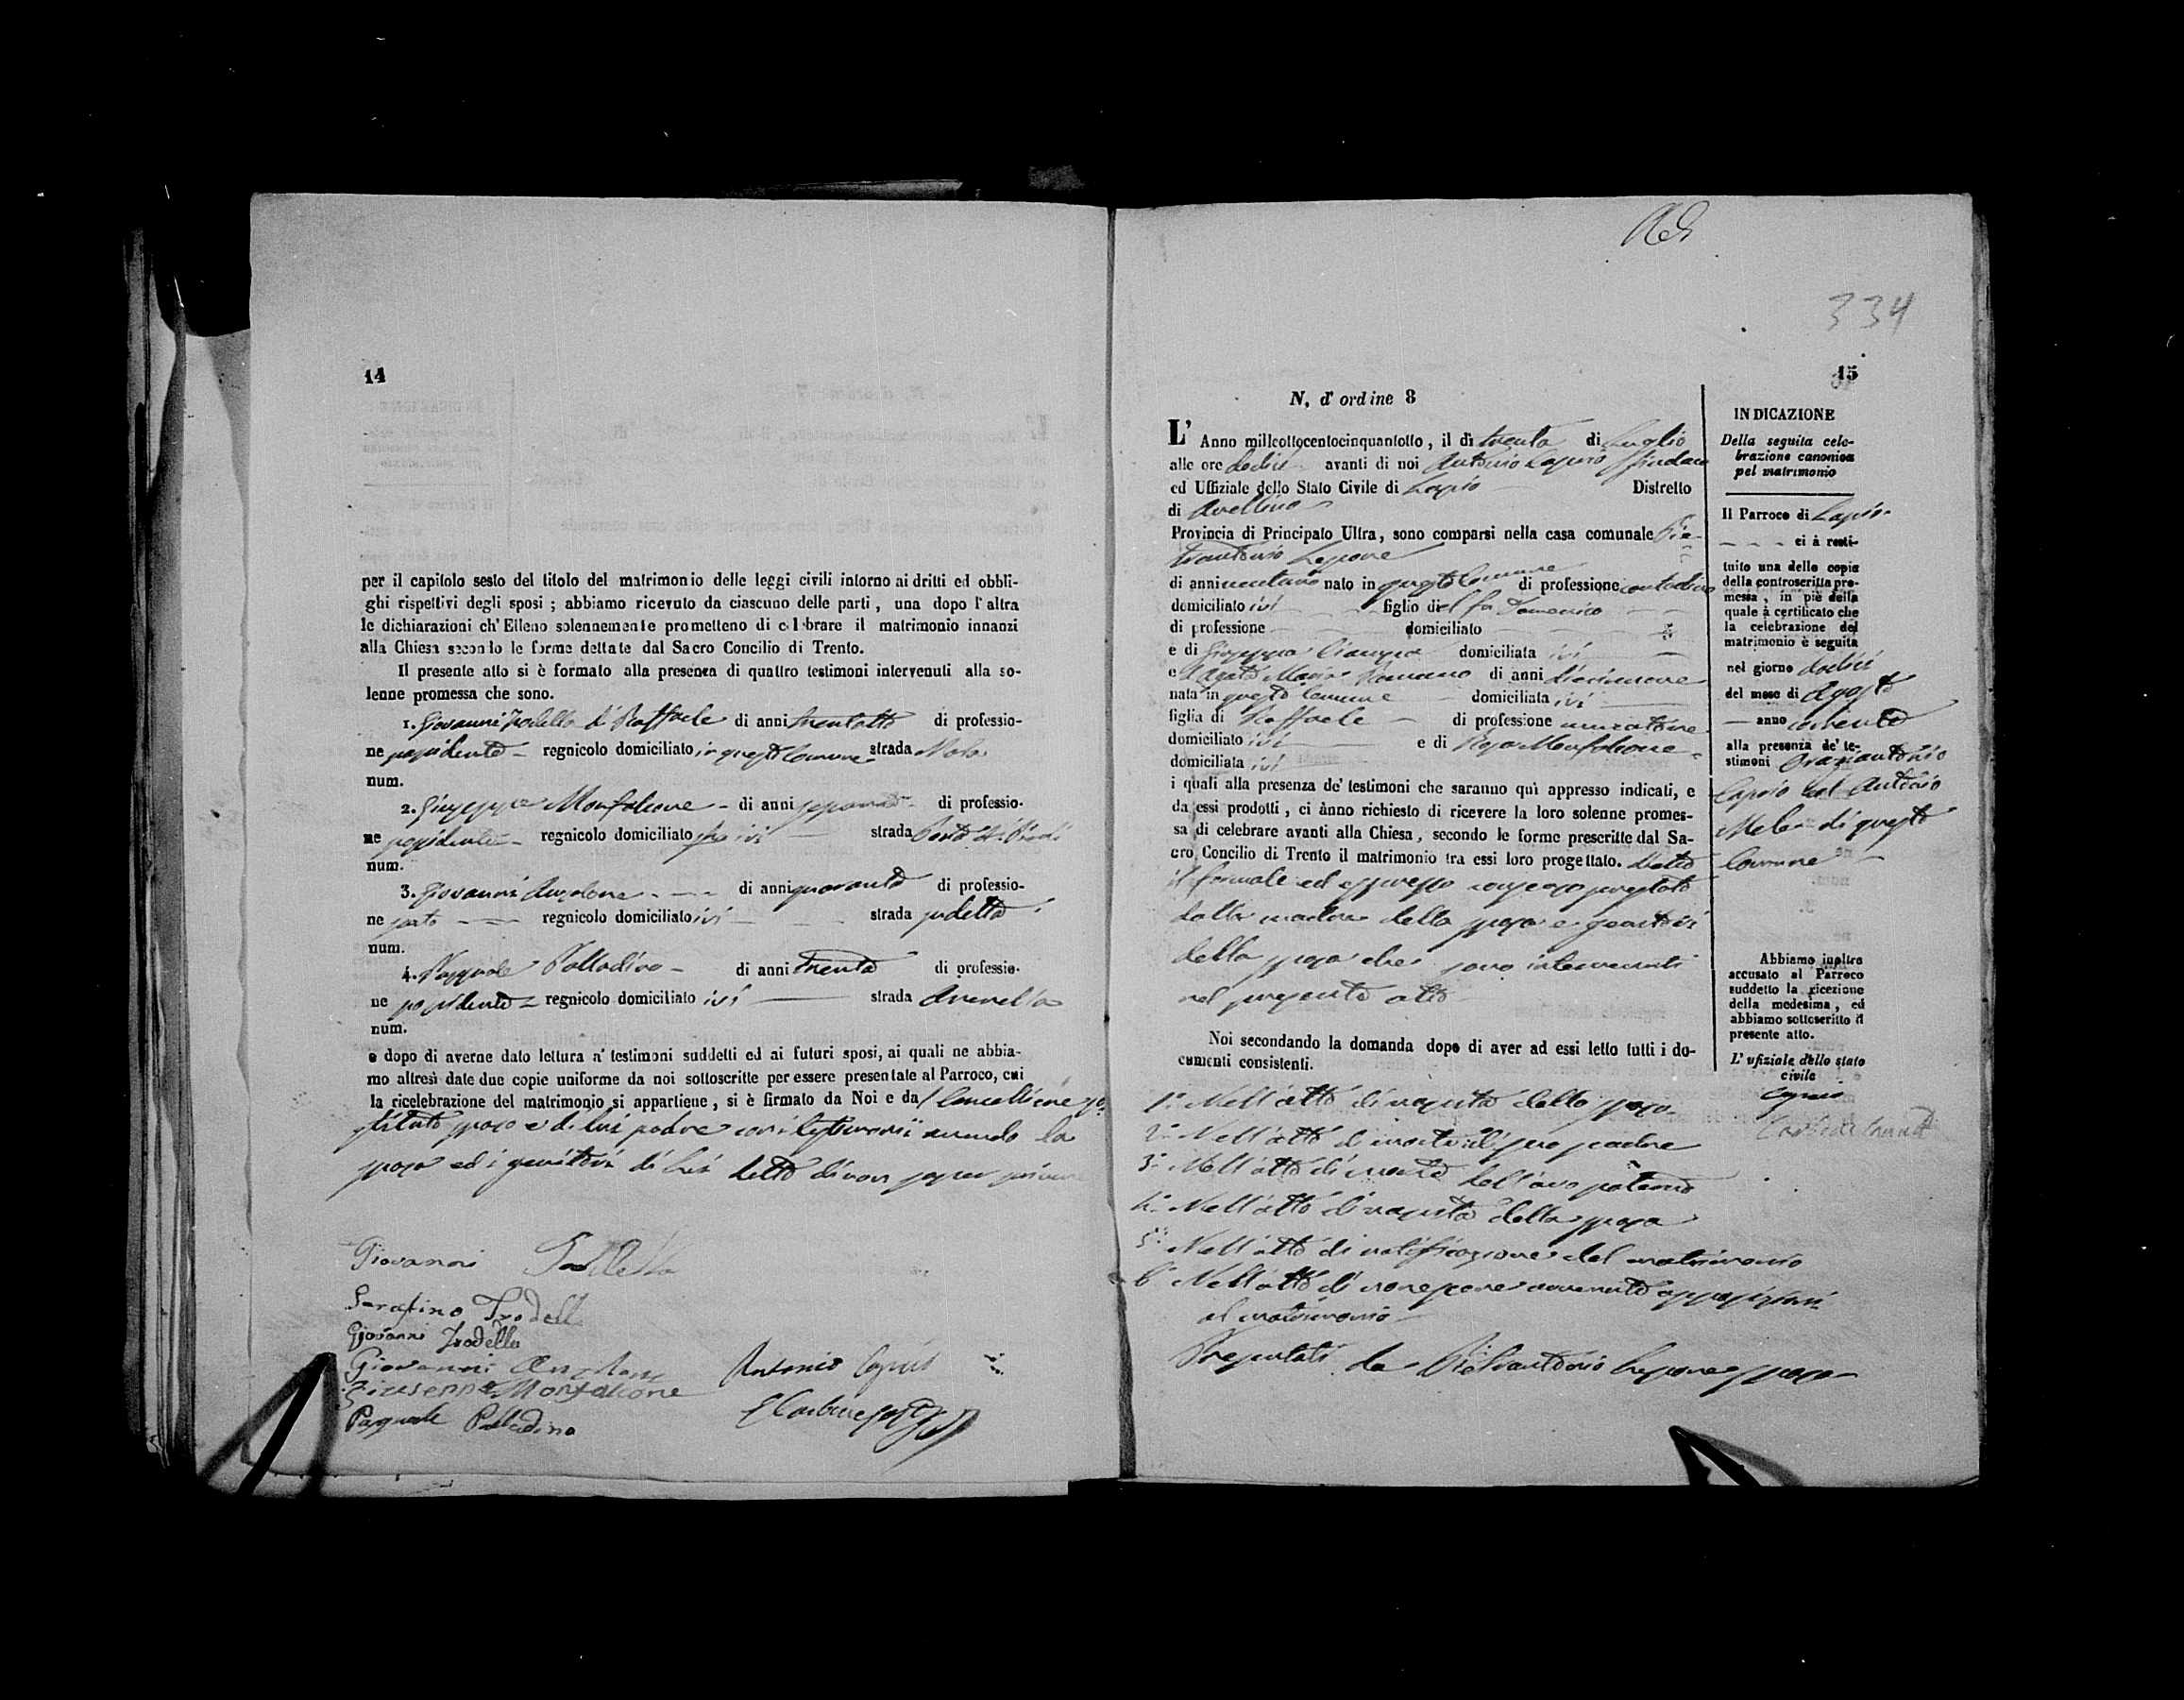 14
per il capitolo sesto del titolo del matrimonio delle leggi civili intorno ai dritti ed obbli-
ghi rispettivi degli sposi ; abbiamo ricevuto da ciascuno delle parti , una dopo l' altra
le dichiarazioni ch' Elleno solennemente promettono di celebrare il matrimonio innanzi
alla Chiesa secondo le forme dettate dal Sacro Concilio di Trento.
Il presente atto si è formato alla presenza di quattro testimoni intervenuti alla so-
lenne promessa che sono.
1. Giovanni Trodella di Raffaele di anni trentotto di professio-
ne possidente regnicolo domiciliato in questo Comune strada Molo
num.
2. Giuseppe Monfalcone di anni sessanta di professio-
ne possidente regnicolo domiciliato ivi strada
num.
3. Giovanni Anzalone di anni quaranta di professio-
ne sarto regnicolo domiciliato ivi strada sudetta
num.
4. Pasquale Palladino di anni trenta di professio-
ne possidente regnicolo domiciliato ivi strada
num.
e dopo di averne dato lettura a' testimoni suddetti ed ai futuri sposi, ai quali ne abbia-
mo altresì date due copie uniforme da noi sottoscritte per essere presentate al Parroco, cui
la ricelebrazione del matrimonio si appartiene , si è firmato da Noi e dal Cancelliere so-
stituto sposo e di lui padre coi testimonii avendo la
sposa ed i genitori di lei detto di non saper scrivere
Giovanni Trodella
Serafino Trodella
Giovanni Trodella
Giovanni Anzalone
Giuseppe Monfalcone
Pasquale Palladino
Antonio Caputo
334
15
N. d' ordine 8
L' Anno millottocentocinquantotto , il dì trenta di Luglio
alle ore dodici avanti di noi Antonio Caputo Sindaco
ed Uffiziale dello Stato Civile di Lapio Distretto
di Avellino
Provincia di Principato Ultra, sono comparsi nella casa comunale Pie-
trantonio Lepore
di anni ventuno nato in questo Comune di professione contadino
domiciliato ivi figlio del fu Domenico
di professione domiciliato
e di Giuseppa Ciampa domiciliata ivi
e Maria Romano di anni diecinnove
nata in questo Comune domiciliata ivi
figlia di Raffaele di professione muratore
domiciliato ivi e di Rosa Monfalcone
domiciliata ivi
i quali alla presenza de' testimoni che saranno quì appresso indicati, e
da essi prodotti , ci ànno richiesto di ricevere la loro solenne promes-
sa di celebrare avanti alla Chiesa , secondo le forme prescritte dal Sa-
cro Concilio di Trento il matrimonio tra essi loro progettato. Dietro
il formale ed espresso consenso prestato
dalla madre dello sposo e genitori
della sposa che sono intervenuti
nel presente atto
Noi secondando la domanda dopo di aver ad essi letto tutti i do-
cumenti consistenti.
1.° Nell'atto di nascita dello sposo
2.° Nell'atto di morte di suo padre
3.° Nell'atto di morte dell'avo paterno
4.° Nell'atto di nascita della sposa
5.° Nell'atto di notificazione del matrimonio
6.° Nell'atto di non essere avvenute opposizioni
al matrimonio
Presentati da Pietrantonio Lepore sposo
INDICAZIONE
Della seguita cele-
brazione canonica
pel matrimonio
Il Parroco di Lapio
ci à resti-
tuito una delle copie
della controscritta pro-
messa , in piè della
quale à certificato che
la celebrazione del
matrimonio è seguita
nel giorno dodici
del mese di Agosto
anno corrente
alla presenza de' te-
stimoni Oraziantonio
Caputo ed Antonio
Mele di questo
Comune
Abbiamo inoltre
accusato al Parroco
suddetto la ricezione
della medesima , ed
abbiamo sottoscritto il
presente atto.
L' ufiziale dello stato
civile
Caputo